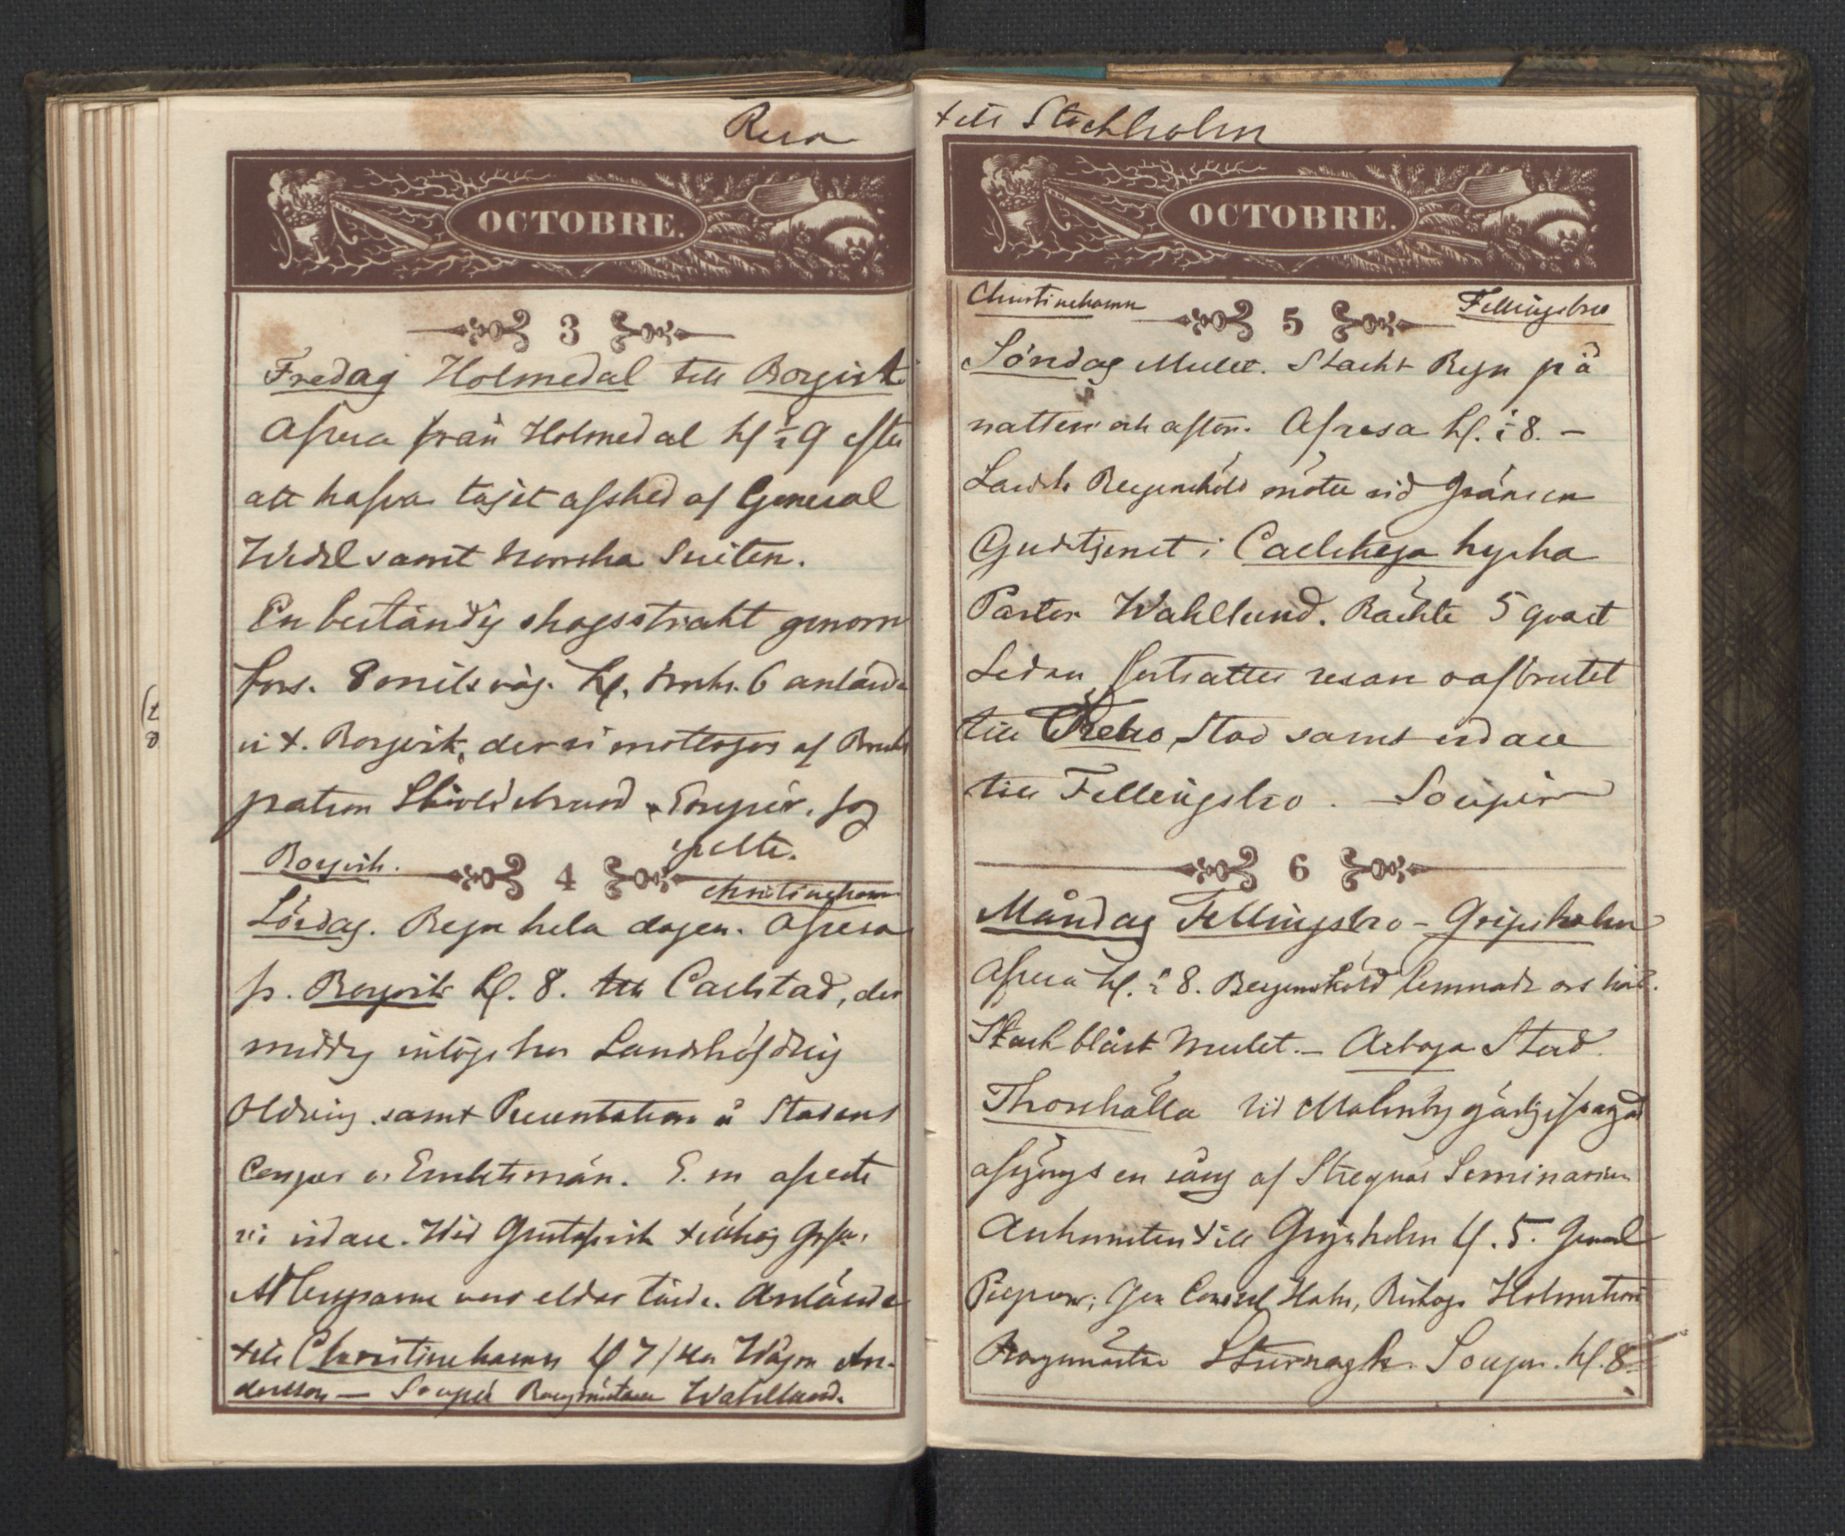 Resa
OCTOBRE.
3
Fredag Holmedal till Borgvik
Afresa från Holmedal kl ½ 9 efter
att hafva tagit afsked af General
Wedel samt Norska Suiten.
En beständig skogsstrakt genom
fors. 8 mils väg. Kl. 6 anlände
vi t. Borgvik, der vi mottogos af Bruks
patron Skiöldebrand. Soupér. Jag
spelte.
Borgvik.
4
Christinehamn
Lördag. Regn hela dagen. Afresa
fr. Borgvik Kl. 8. till Carlstad, der
middag intogs hos Landshöfding
samt Presentation å Stadens
Corpser o. Embetsmän. E. m afreste
vi vidare. Wid
voro eldar tända. Anlände
till Christinehamn kl 7 / hos An-
dersson — Soupér Borgmästare Wahllund.
till Stockholm
OCTOBRE.
Christinehamn
5
Fellingsbro
Söndag Mulet. Starkt Regn på
natten och afton. Afresa kl. ½ 8. —
Landsh Bergensköld möter vid gränsen
Gudstjenst i Carlskoga kyrka
Pastor Wahllund. Räckte 5 qvart
Sedan fortsattes resan oafbrutet
till Örebro Stad samt vidare
till Fellingsbro. — Soupér
6
Måndag Fellingsbro – Gripsholm
Afresa kl. ½ 8. Bergensköld lemnade oss här.
Stark blåst Mulet. — Arboga Stad.
Thorshälla Vid Malmby gästgifvaregård
afsjöngs en sång af Stregnäs Seminarium
Ankomsten till Gripsholm kl. 5. General
Peyron, Gen Consul Hahn, Biskop Holmström
Borgmästare Soupér. kl. 8.